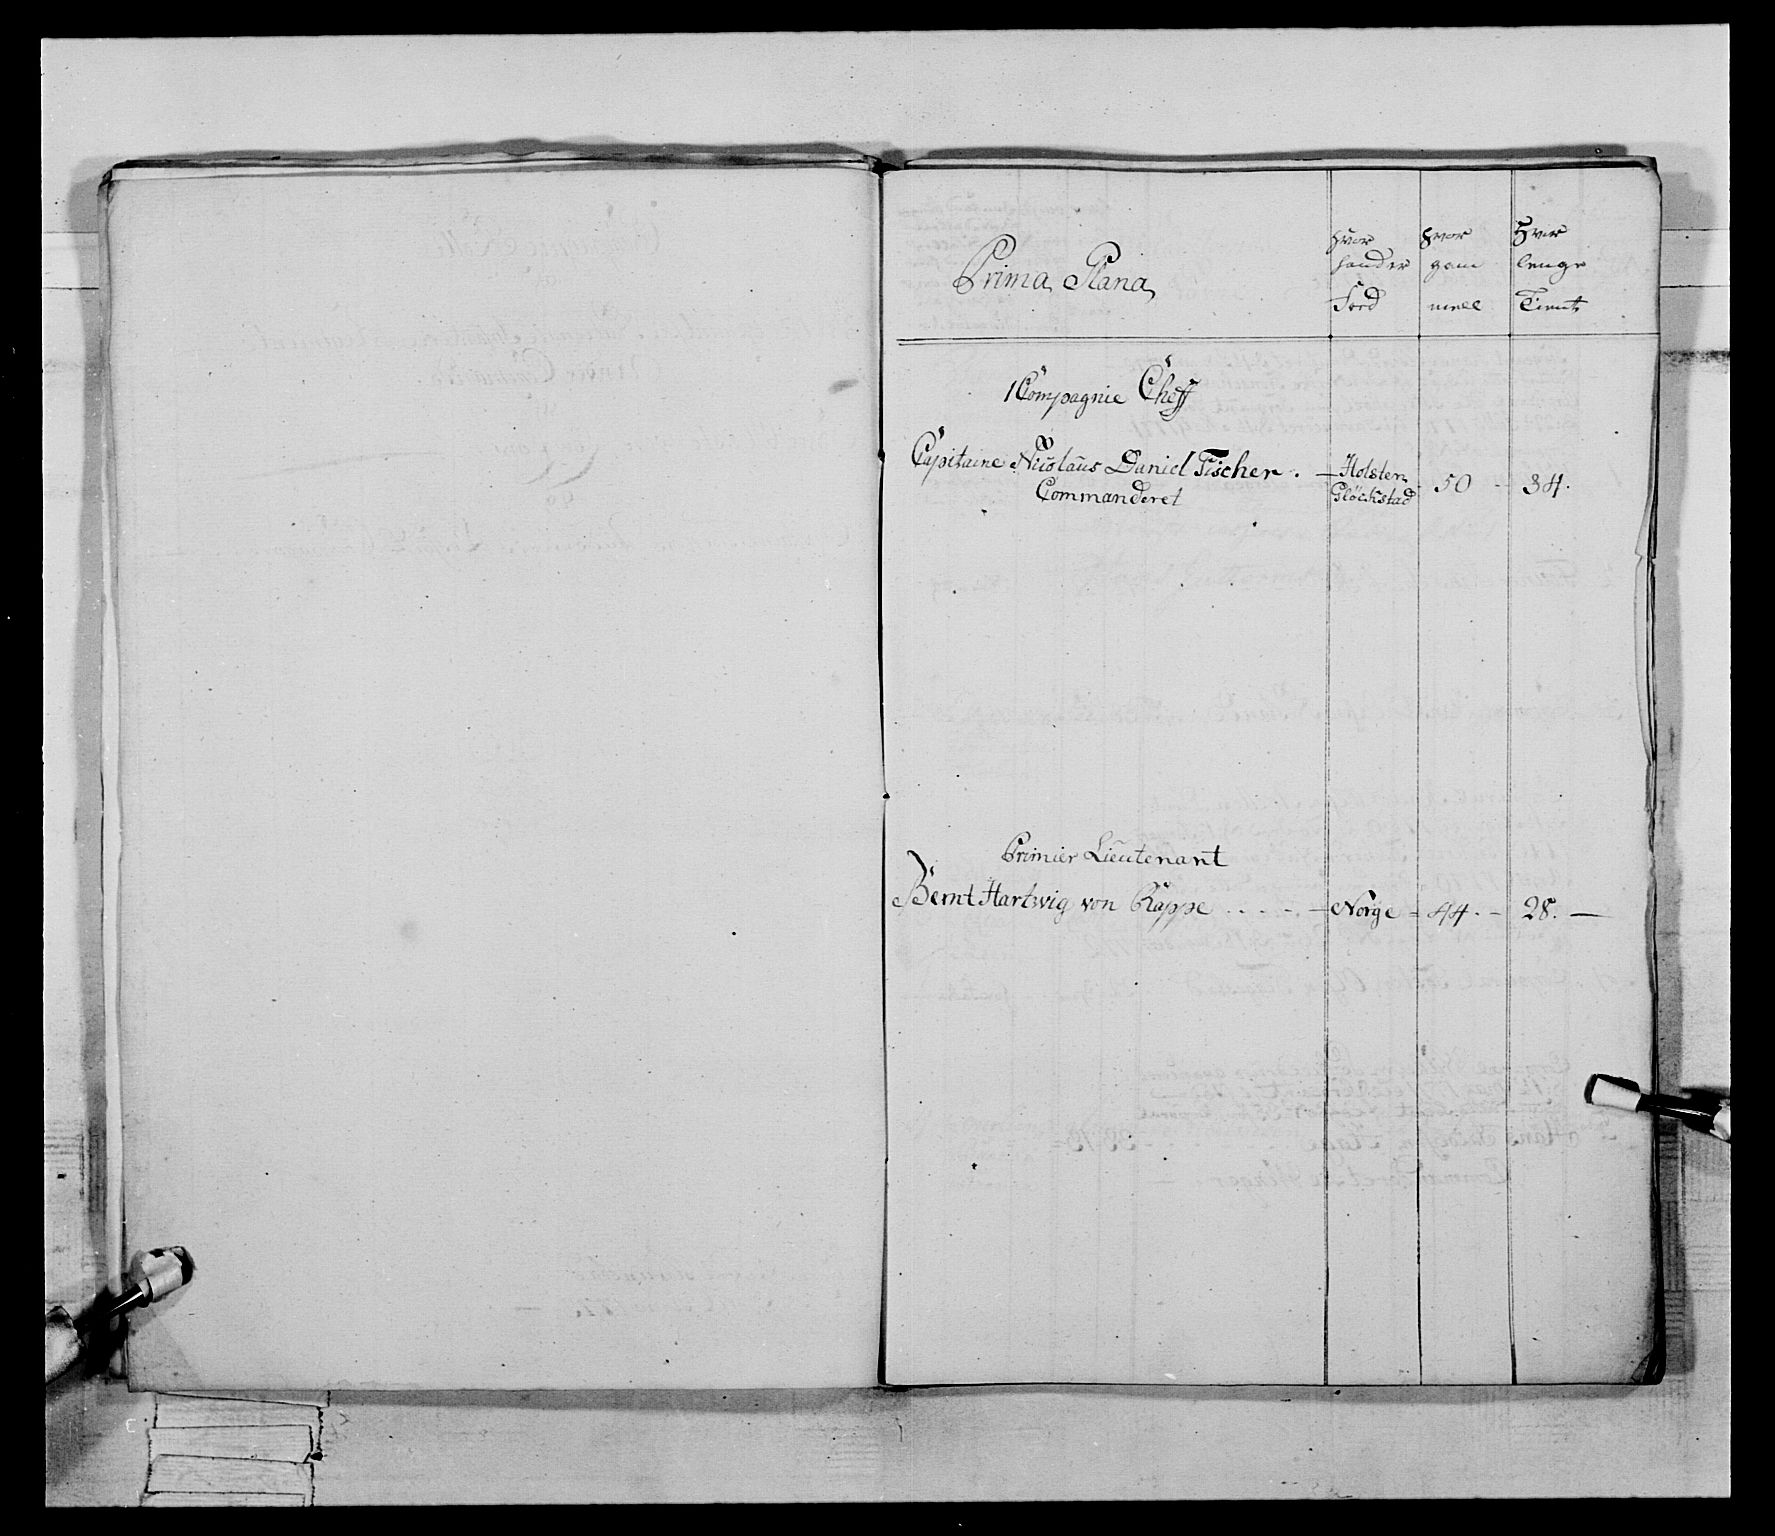 Prima Plana
Hvor hand er Fød
Hvor gammell
Hvor lenge Tient
1 Compagnie Cheff
Capitaine Nicolaus Daniel Fischer . — Holsten Glöckstad - 50 - - 34.
Commanderet
Primier Lieutenant
Bernt Hartwig von Kappe . . . . — Norge - 44. - 28. —